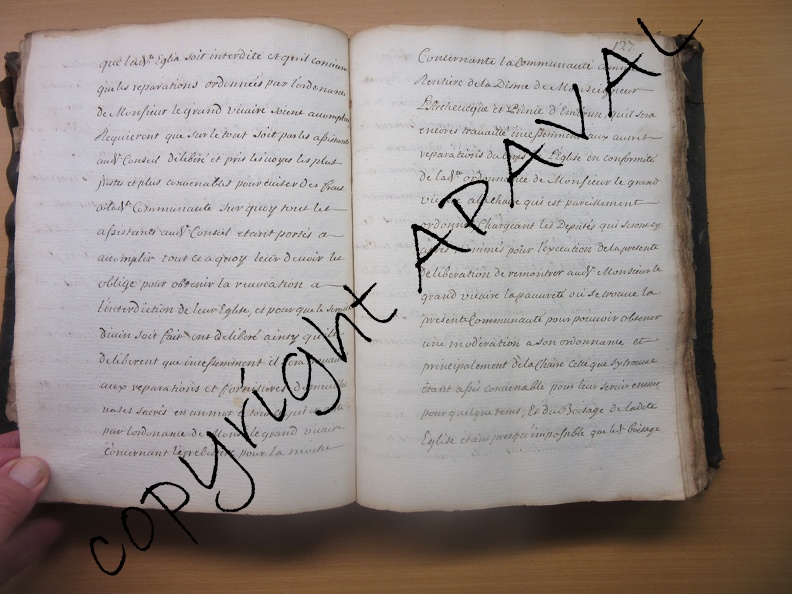 que lad.te Eglise soit interdite et qu'il convient
que les reparations ordonnées par l'ordonnance
de Monsieur le grand vicaire soient accomplies
Requierent que sur le tout soit par les assistants
aud.t Conseil déliberé et pris les voyes les plus
justes et plus convenables pour eviser des fraix
a lad.te Communauté sur quoy tout les
assistants aud.t Conseil etant portés a
accomplir tout ce a quoy leur devoir les
oblige pour obtenir la revocation a
l'interdiction de leur Eglise, et pour que le service
Divin soit fait ont deliberé ainsy qu'ils
deliberent que incessemment il sera
aux reparations et fornitures
vases sacrés en un mot a tout
par l'ordonance de Mons.r le grand vicaire
Concernant le presbitere pour la moitie
127
Concernante la Communauté
Rentiere de la Disme de Monseigneur
L'Archeveque et Prince d'Embrun, qu'il sera
encores travaillé incessemment aux autres
reparations du Eglise en conformité
de lad.te ordonnance de Monsieur le grand
vicaire a la chaire qui est pareillement
ordonné Chargeant les Deputés qui seront cy
après nommés pour l'execution de la presente
deliberation de remontrer aud.t Monsieur le
grand vicaire la pauvreté ou se trouve la
presente Communauté pour pouvoir obtenir
une modération a son ordonnance et
principalement de la Chaire Celle que s'y trouve
étant assés convenable pour leur servir encore
pour quelque tems, Et du Boisage de ladite
Eglise etant presqu'impossible que led.t boisage
copyright APAVAL